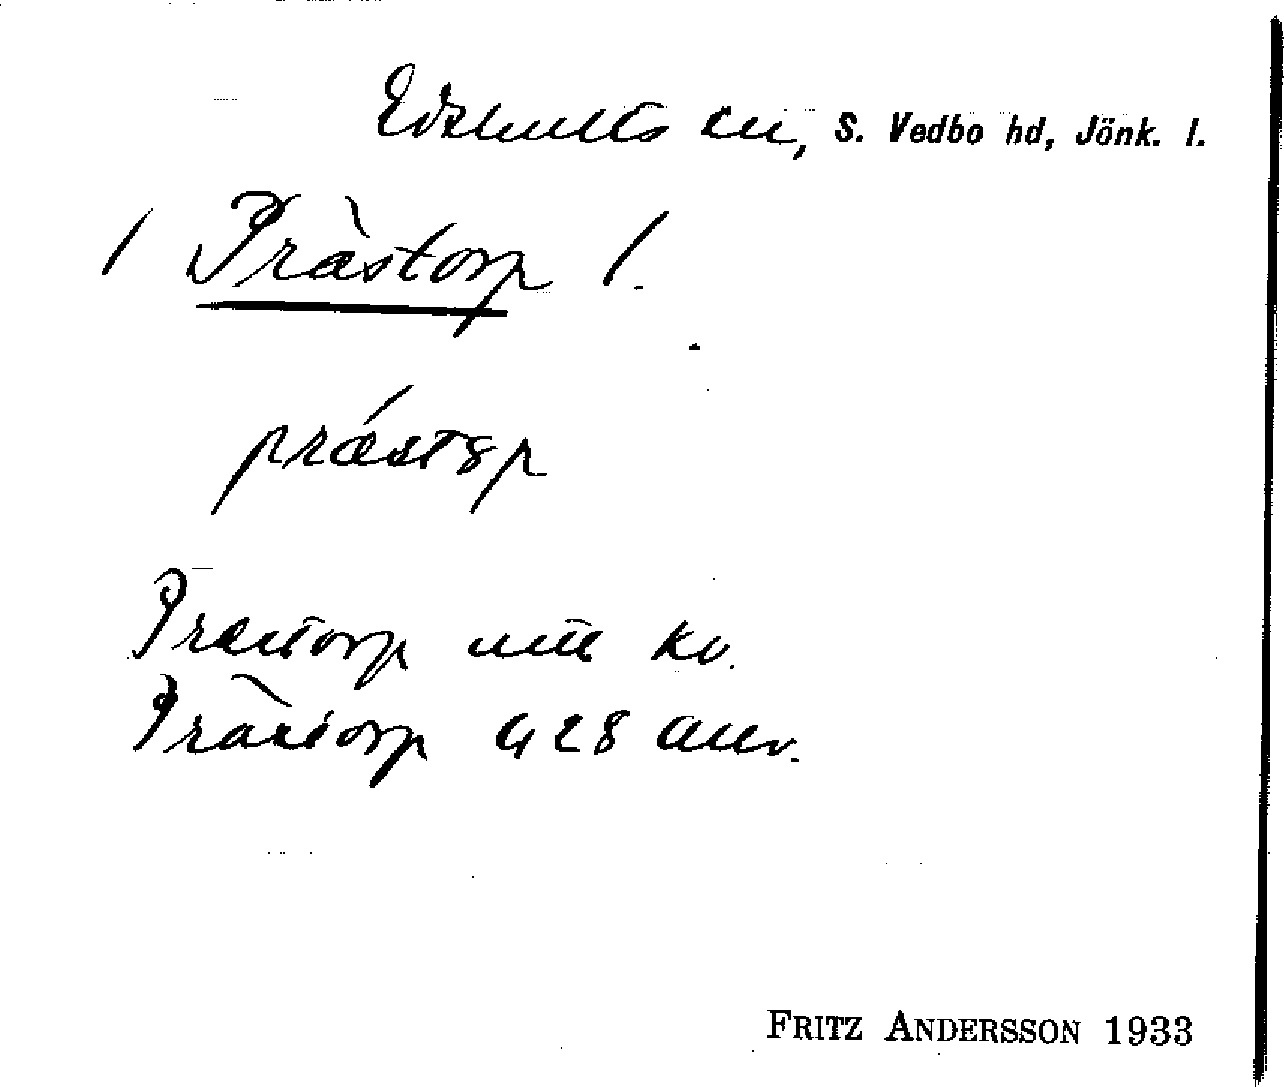 Edshults sn, S. Vedbo hd, Jönk. l.
/ Prästorp /.
prástsp
Prästorp mtl kv.
Prästorp G 28 anv.
FRITZ ANDERSSON 1933